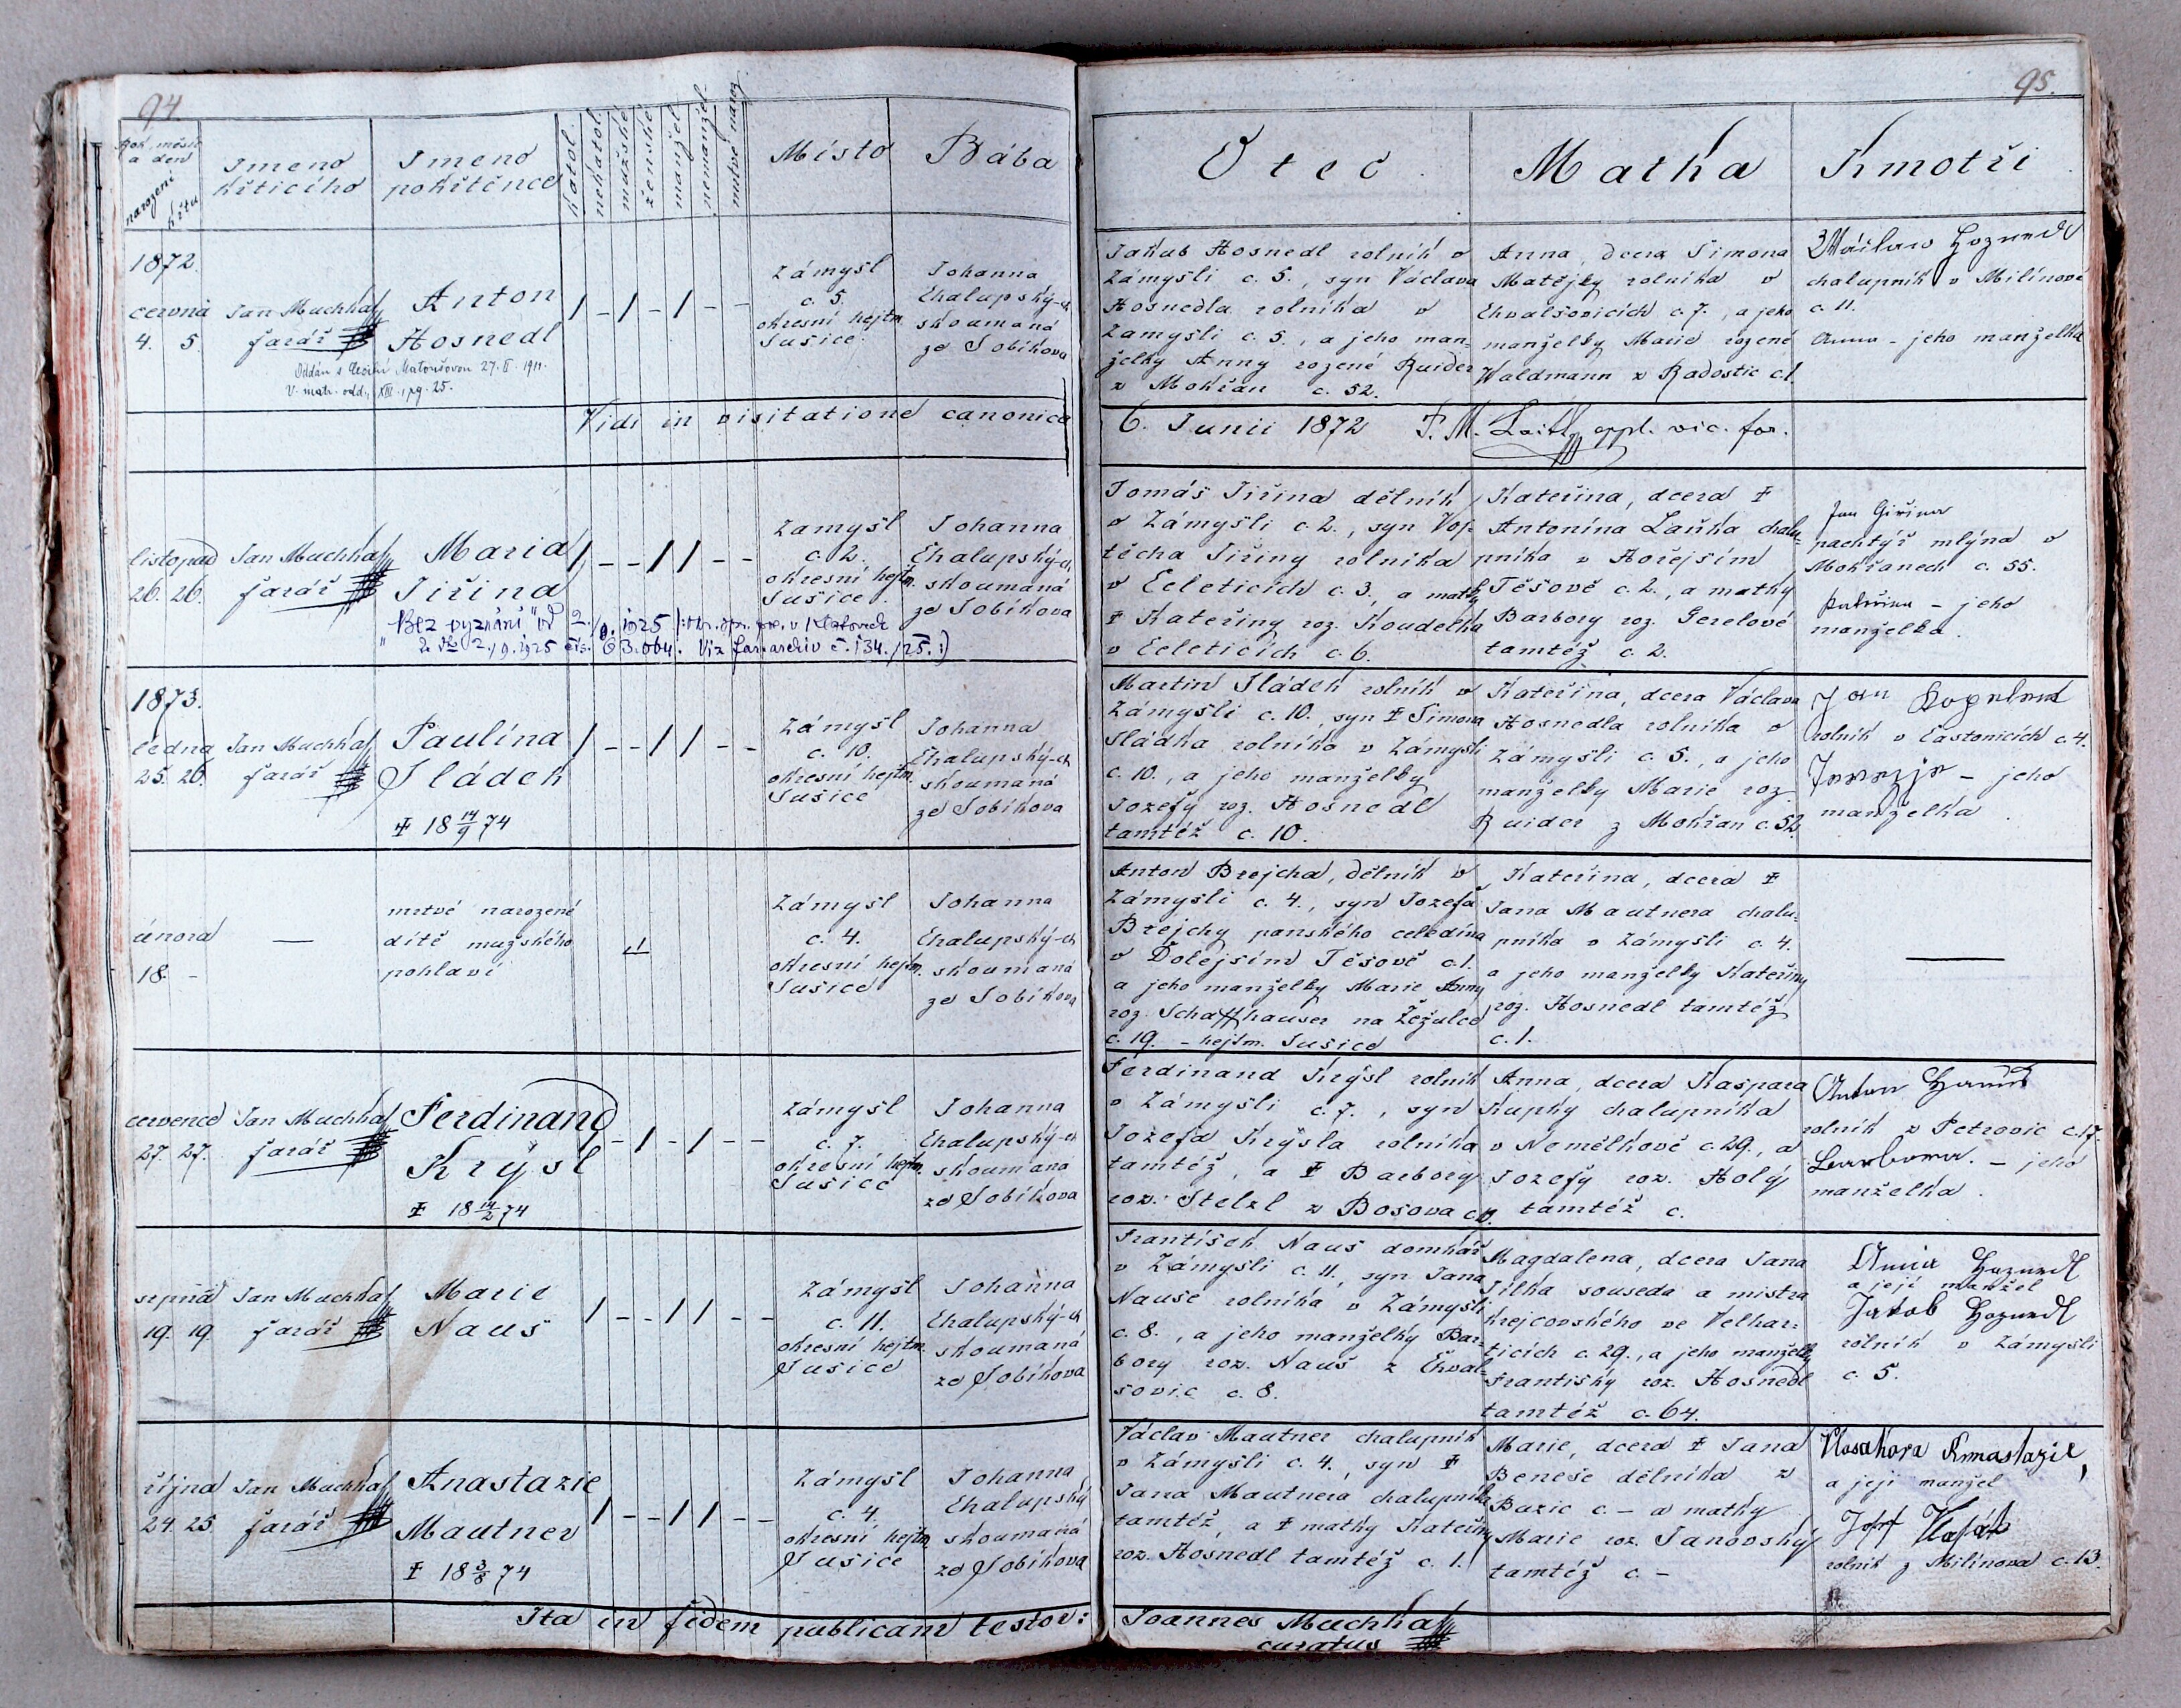 94
Rok, měsíc
a den
narození
křtu
Jmeno
křticího
Jmeno
pokřtěnce
katol.
nekatol.
mužské
ženské
manžel.
nemanžel.
mrtvě naroz.
Místo
Bába
1872.
června
4. 5.
Jan Muchka
farář
Anton
Hosnedl
Oddán s
Matoušovou 27. II. 1911.
V. matr. odd. XIII. pg. 25.
/ - / - / - -
Zámyšl
c. 5.
okresní hejtm.
Sušice
Johanna
Chalupský-ch
skoumaná
ze Sobikova
Vidi in visitatione canonica
listopad
26. 26.
Jan Muchka
farář
Maria
Jiřina
"Bez vyznání" od 2./9. 1925
2. 9. 1925 čís. 63.064. Viz far. archiv č. 134./25. :)
/ - - / / - -
Zamyšl
c. 2.
okresní hejtm.
Sušice
Johanna
Chalupský-ch
skoumaná
ze Sobikova
1873.
ledna
25. 26.
Jan Muchka
farář
Paulina
Sládek
‡ 18 14/9 74
/ - - / / - -
Zámyšl
c. 10.
okresní hejtm.
Sušice
Johanna
Chalupský-ch
skoumaná
ze Sobikova
února
18. -
—
mrtvé narozené
dítě mužského
pohlaví
Zámyšl
c. 4.
okresní hejtm.
Sušice
Johanna
Chalupský-ch
skoumaná
ze Sobikova
července
27. 27.
Jan Muchka
farář
Ferdinand
Krýsl
‡ 18 14/2 74
/ - / - / - -
Zámyšl
c. 7.
okresní hejtm.
Sušice
Johanna
Chalupský-ch
skoumana
ze Sobikova
srpna
19. 19.
Jan Muchka
farář
Marie
Nauš
/ - - / / - -
Zámyšl
c. 11.
okresní hejtm.
Sušice
Johanna
Chalupský-ch
skoumaná
ze Sobikova
října
24. 25
Jan Muchka
farář
Anastazie
Mautner
‡ 18 3/8 74
/ - - / / - -
Zámyšl
c. 4.
okresní hejtm.
Sušice
Johanna
Chalupský
skoumaná
ze Sobikova
Ita in fidem publicam testor:
95.
Otec
Matka
Kmotři
Jakub Hosnedl rolník v
Zámyšli c. 5., syn Václava
Hosnedla rolníka v
Zamyšli c. 5., a jeho man-
želky Anny rozené Ruider
z Mokřan c. 52.
Anna, dcera Simona
Matějky rolníka v
Chvalšovicích c. 7., a jeho
manželky Marie rozené
Waldmann z Radostic c. 1.
Wáclaw Hoznedl
chalupník v Milínově
c. 11.
Anna - jeho manželka
6. Junii 1872 F. M. eppl. vic. for.
Tomáš Jiřina dělník
v Zámyšli c. 2., syn Voj-
těcha Jiřiny rolníka
v Čeleticích c. 3., a matky
‡ Kateřiny roz. Koudelka
v Čeleticích c. 6.
Kateřina, dcera ‡
Antonína Laňka chalu-
pníka v Hořejsím
Těšově c. 2., a matky
Barbory roz. Gerelové
tamtéž c. 2.
Jan Giřina
pachtýř mlýna v
Mokřanech c. 55.
Kateřina - jeho
manželka.
Martin Sládek rolník v
Zámyšli c. 10., syn ‡ Simona
Sládka rolníka v Zámyšli
c. 10., a jeho manželky
Jozefy roz. Hosnedl
tamtéž c. 10.
Kateřina, dcera Václava
Hosnedla rolníka v
Zámyšli c. 5., a jeho
manželky Marie roz.
Ruider z Mokřan c. 52.
Jan
rolník v Častonicích c. 4.
- jeho
manželka.
Anton Brejcha, dělník v
Zámyšli c. 4., syn Jozefa
Brejchy panského čeledína
v Dolejším Těšově c. 1.
a jeho manželky Marie Anny
roz. Schaffhauser na Žežulce
c. 19. - hejtm. Sušice
Kateřina, dcera ‡
Jana Mautnera chalu-
pníka v Zámyšli c. 4.
a jeho manželky Kateřiny
roz. Hosnedl tamtéž
c. 1.
—
Ferdinand Krýsl rolník
v Zámyšli c. 7., syn
Jozefa Krýsla rolníka
tamtéž, a ‡ Barbory
roz. Stelzl z Bosova
Anna, dcera Kaspara
Kupky chalupníka
v Nemělkově c. 29., a
Jozefy roz. Holý
tamtéž c.
Anton
rolník z Petrovic c. 17.
Barbora. - jeho
manželka.
František Nauš domkář
v Zámyšli c. 11., syn Jana
Nauše rolníka v Zámyšli
c. 8., a jeho manželky Bar-
bory roz. Nauš z Chval-
šovic c. 8.
Magdalena, dcera Jana
Jílka souseda a mistra
krejcovského ve Velhar-
ticích c. 29., a jeho manželky
Františky roz. Hosnedl
tamtéž c. 64.
Anna Hoznedl
a její manžel
Jakob Hoznedl
rolník v Zámyšli
c. 5.
Václav Mautner chalupník
v Zámyšli c. 4., syn ‡
Jana Mautnera chalupníka
tamtéž, a ‡ matky Kateřiny
roz. Hosnedl tamtéž c. 1.
Marie, dcera ‡ Jana
Beneše dělníka z
Buzic c. - a matky
Marie roz. Janovský
tamtéž c. -
a její manžel
rolník z Milínova c. 13.
Joannes Muchka
curatus